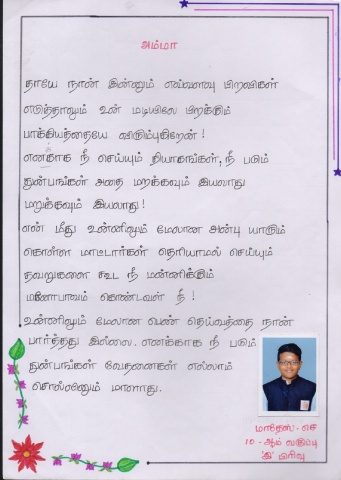 அம்மா
தாயே நான் இன்னும் எவ்வளவு பிறவிகள்
எடுத்தாலும் உன் மடியிலே பிறக்கும்
பாக்கியத்தையே விரும்புகிறேன்!
எனகாக நீ செய்யும் தியாகங்கள், நீ படும்
துன்பங்கள் அதை மறக்கவும் இயலாது
மறுக்கவும் இயலாது!
என் மீது உன்னிலும் மேலான அன்பு யாரும்
கொள்ள மாட்டார்கள் தெரியாமல் செய்யும்
தவறுகளை கூட நீ மன்னிக்கும்
மனோபாவம் கொண்டவள் நீ!
உன்னிலும் மேலான பெண் தெய்வத்தை நான்
பார்த்தது இல்லை. எனக்காக நீ படும்
துன்பங்கள் வேதனைகள் எல்லாம்
சொல்லவும் மாளாது.
மாதேஸ் - செ
10 - ஆம் வகுப்பு
பிரிவு